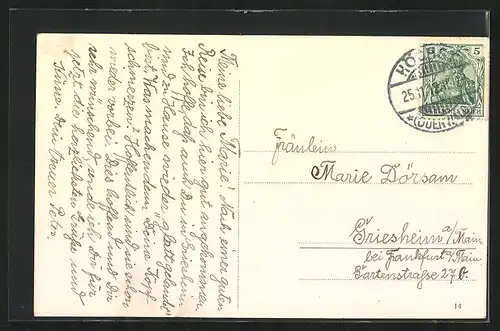 Meine liebe Marie! Nach einer guten
Reise bin ich hier gut angekommen.
Ich hoffe, daß auch Du in Griesheim
im Hause wieder glatt gelandet
bist. Was machen denn Deine Kopf-
schmerzen? Hoffentlich sind sie schon
wieder vorbei. Dies hoffend und Dir
sehr wünschend sende ich Dir für
jetzt die herzlichsten Grüße und
Küsse Dein treuer Peter.
5
25.11.12
(ODENW.)
Fräulein
Marie Dörsam
Griesheim a/Main
bei Frankfurt a/Main
Gartenstraße 27 b
14